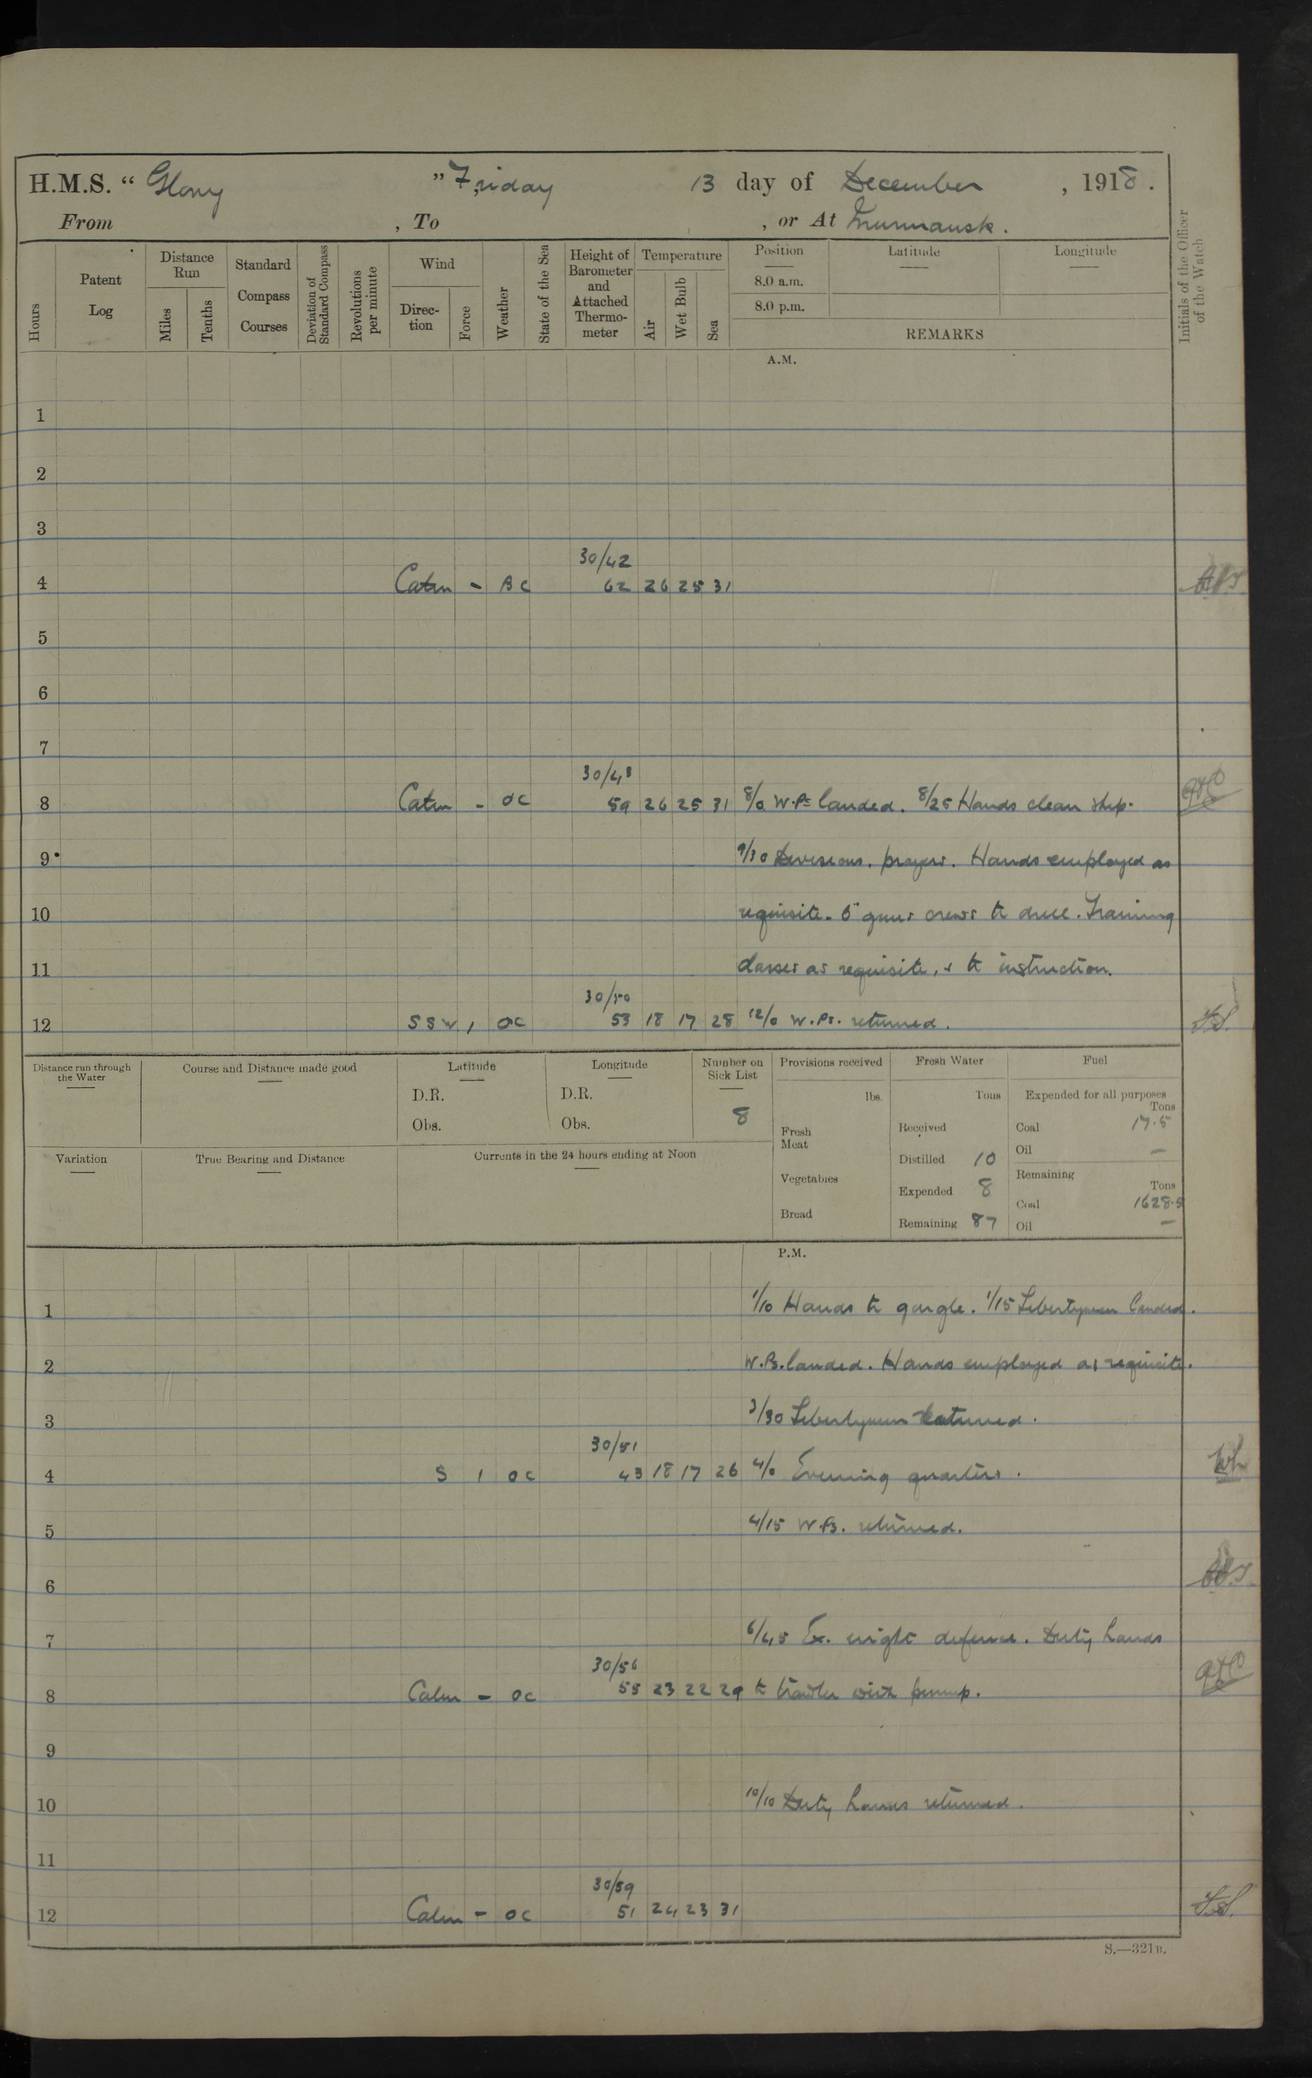 H.M.S. “ Glory ” Friday 13 day of December , 1918 .
From , To , or At Murmansk .
Hours
Patent Log
Distance Run
Miles
Tenths
Standard Compass Courses
Deviation of Standard Compass
Revolutions per minute
Wind
Direc-tion
Force
Weather
State of the Sea
Height of Barometer and Attached Thermo-meter
Temperature
Air
Wet Bulb
Sea
Position
8.0 a.m.
8.0 p.m.
Latitude
Longitude
REMARKS
Initials of the Officer of the Watch
A.M.
1
2
3
30/42
4 Calm - BC 62 26 25 31
5
6
7
30/48
8 Calm - OC 59 26 25 31 8/0 W.Ps landed. 8/25 Hands clean ship.
9 9/30 Divisions. prayers. Hands employed as
10 requisite. 6" guns crews to drill. Training
11 classes as requisite, & to instruction.
30/50
12 SSW 1 OC 53 18 17 28 12/0 W.Ps. returned.
Distance run through the Water
Course and Distance made good
Latitude
D.R.
Obs.
Longitude
D.R.
Obs.
Number on Sick List
8
Provisions received
lbs.
Fresh Meat
Vegetables
Bread
Fresh Water
Tons
Received
Distilled 10
Expended 8
Remaining 87
Fuel
Expended for all purposes
Tons
Coal 17.5
Oil —
Remaining
Tons
Coal 1628.5
Oil —
Variation
True Bearing and Distance
Currents in the 24 hours ending at Noon
P.M.
1 1/10 Hands to gargle. 1/15 Libertymen landed.
2 W.Ps. landed. Hands employed as requisite.
3 3/30 Libertymen returned.
30/51
4 S 1 OC 43 18 17 26 4/0 Evening quarters.
5 4/15 W.Ps. returned.
6
7 6/45 Ex. night defence. Duty hands
30/56
8 Calm - OC 55 23 22 29 to trawler with pump.
9
10 10/10 Duty hands returned.
11
30/59
12 Calm - OC 51 24 23 31
S.—321B.